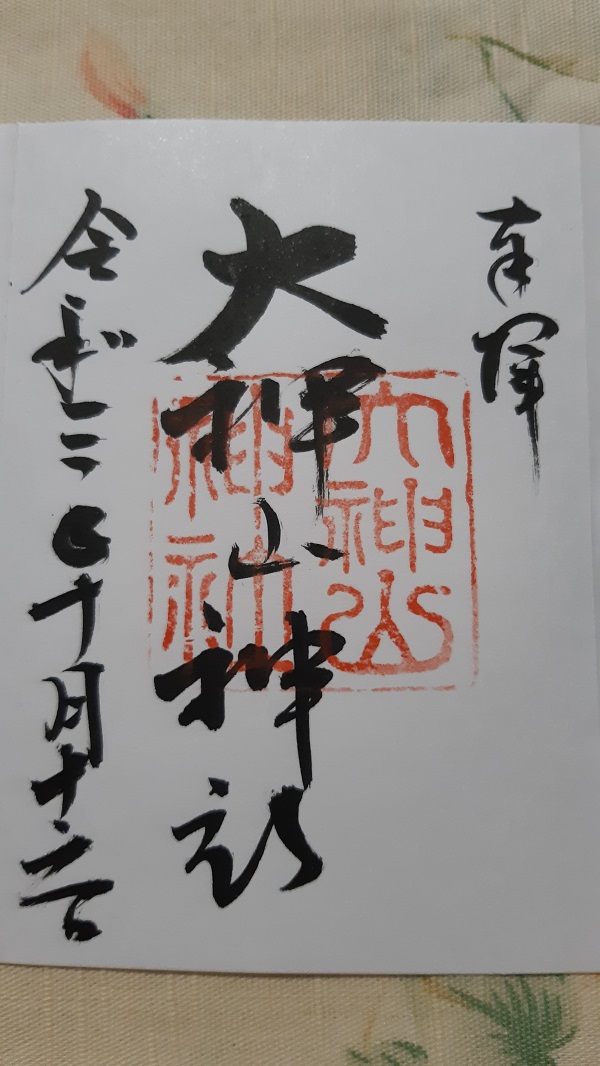 奉拝
大神山神社
大神山
神社
令和二年十月十六日